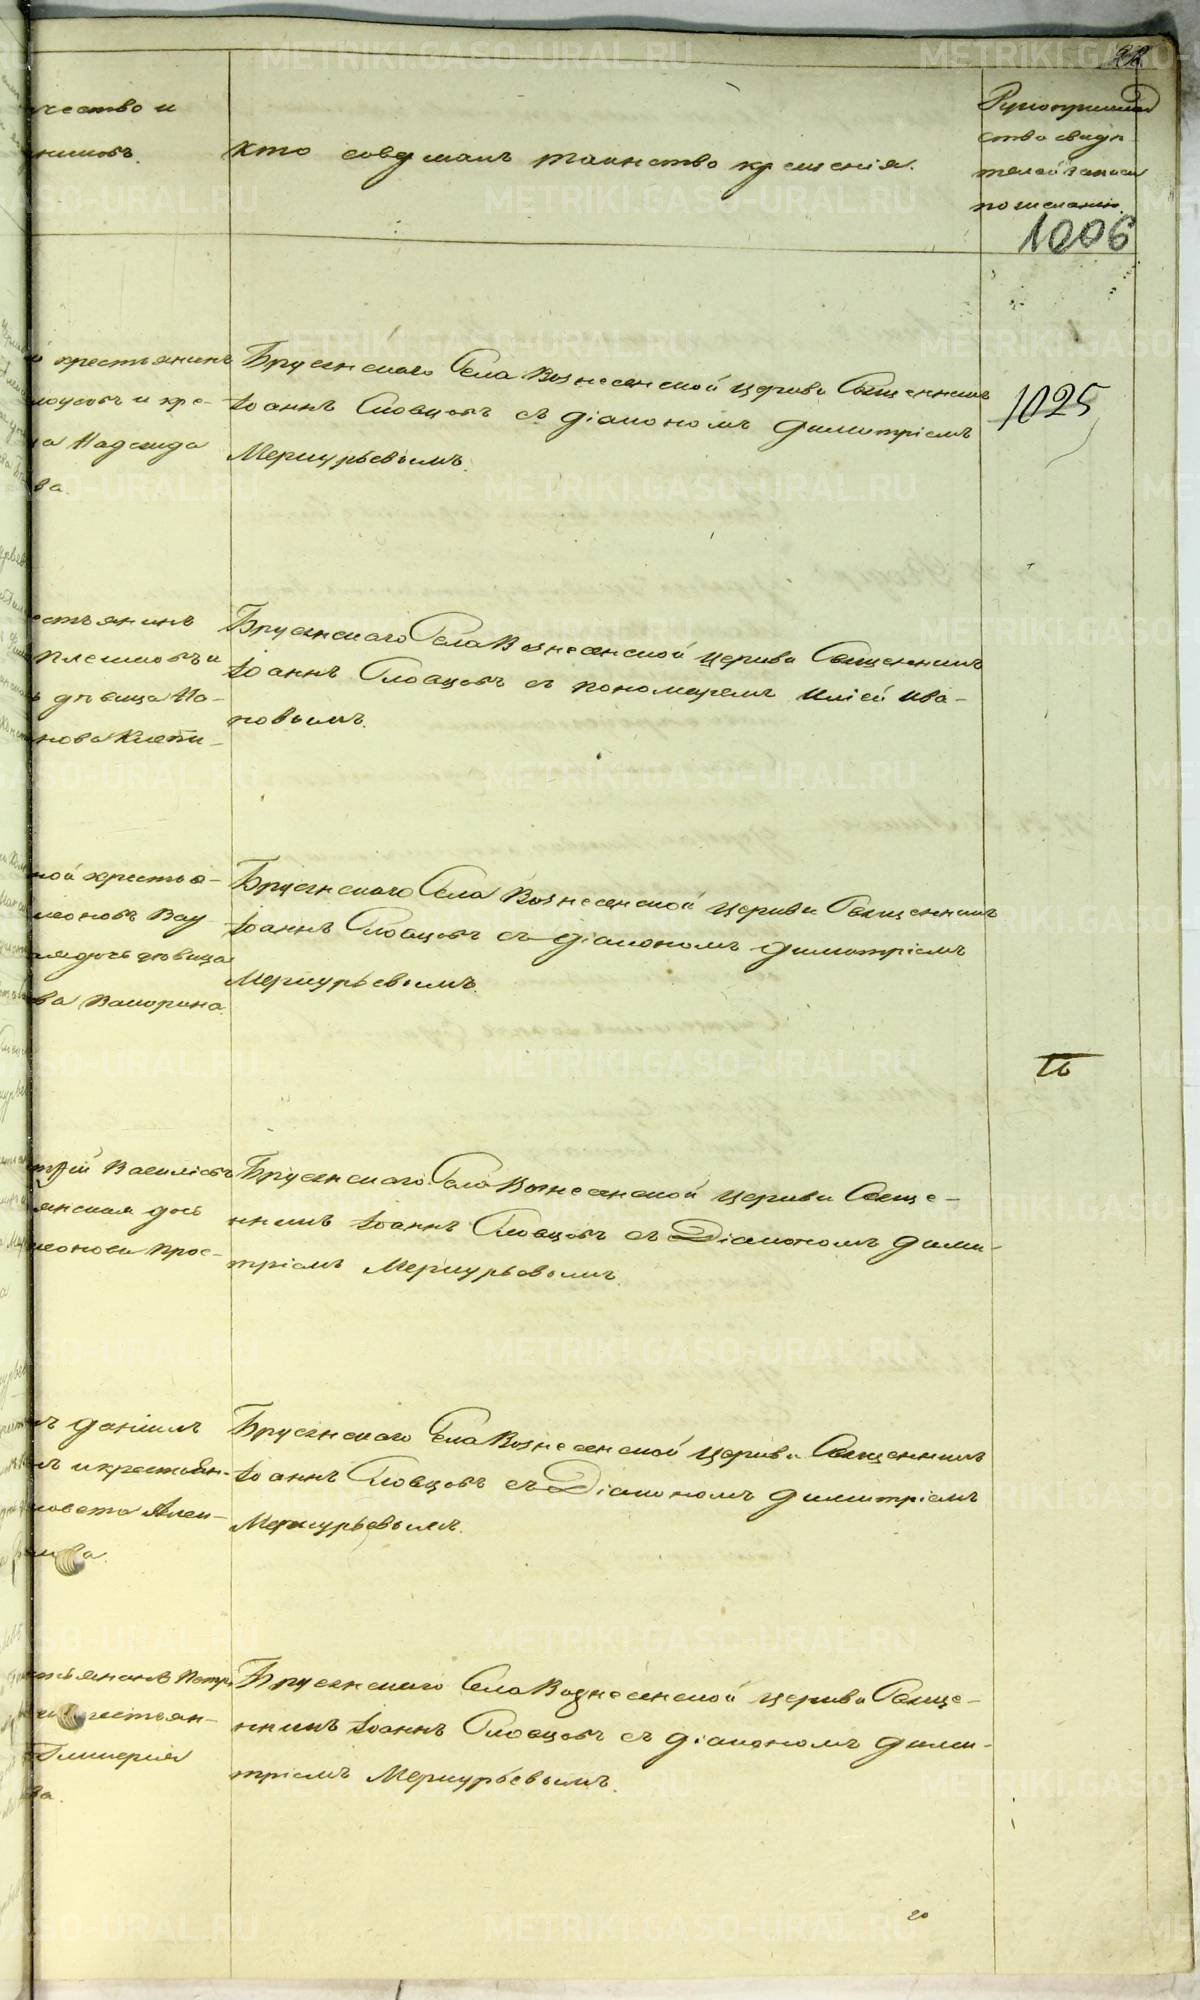 22
чество и
никовъ.
Кто совершалъ таинство крещенія.
Рукоприклад
ство свидѣ
телей записи
по желанію.
1006
й крестьянинъ
лоусовъ и кре-
на Надежда
ва.
Брусянскаго Села Вознесенской церкви Священникъ
Іоаннъ Словцовъ съ діакономъ Димитріемъ
Меркурьевымъ.
1025
естьянинъ
Плешковъ и
ь дѣвица Ма-
нова Клепи-
Брусянскаго Села Вознесенской церкви Священникъ
Іоаннъ Словцовъ съ пономаремъ Иліей Ива-
новымъ.
ной крестья-
леоновъ Вау
ая дочь дѣвица
ва Вакорина.
Брусянскаго Села Вознесенской церкви Священникъ
Іоаннъ Словцовъ съ діакономъ Димитріемъ
Меркурьевымъ.
трій Василіевъ
янская дочь
леоноси прос-
Брусянскаго Села Вознесенской церкви Свяще-
нникъ Іоаннъ Словцовъ съ Діакономъ Дими-
тріемъ Меркурьевымъ.
ъ Даніилъ
ъ и крестьян-
савета Алек-
ва.
Брусянскаго Села Вознесенской церкви Священникъ
Іоаннъ Словцовъ съ Діакономъ Димитріемъ
Меркурьевымъ.
тьянинъ Петръ
и крестьян-
Гликерія
ва.
Брусянскаго Села Вознесенской церкви Свяще-
нникъ Іоаннъ Словцовъ съ діакономъ Дими-
тріемъ Меркурьевымъ.
METRIKI.GASO-URAL.RU